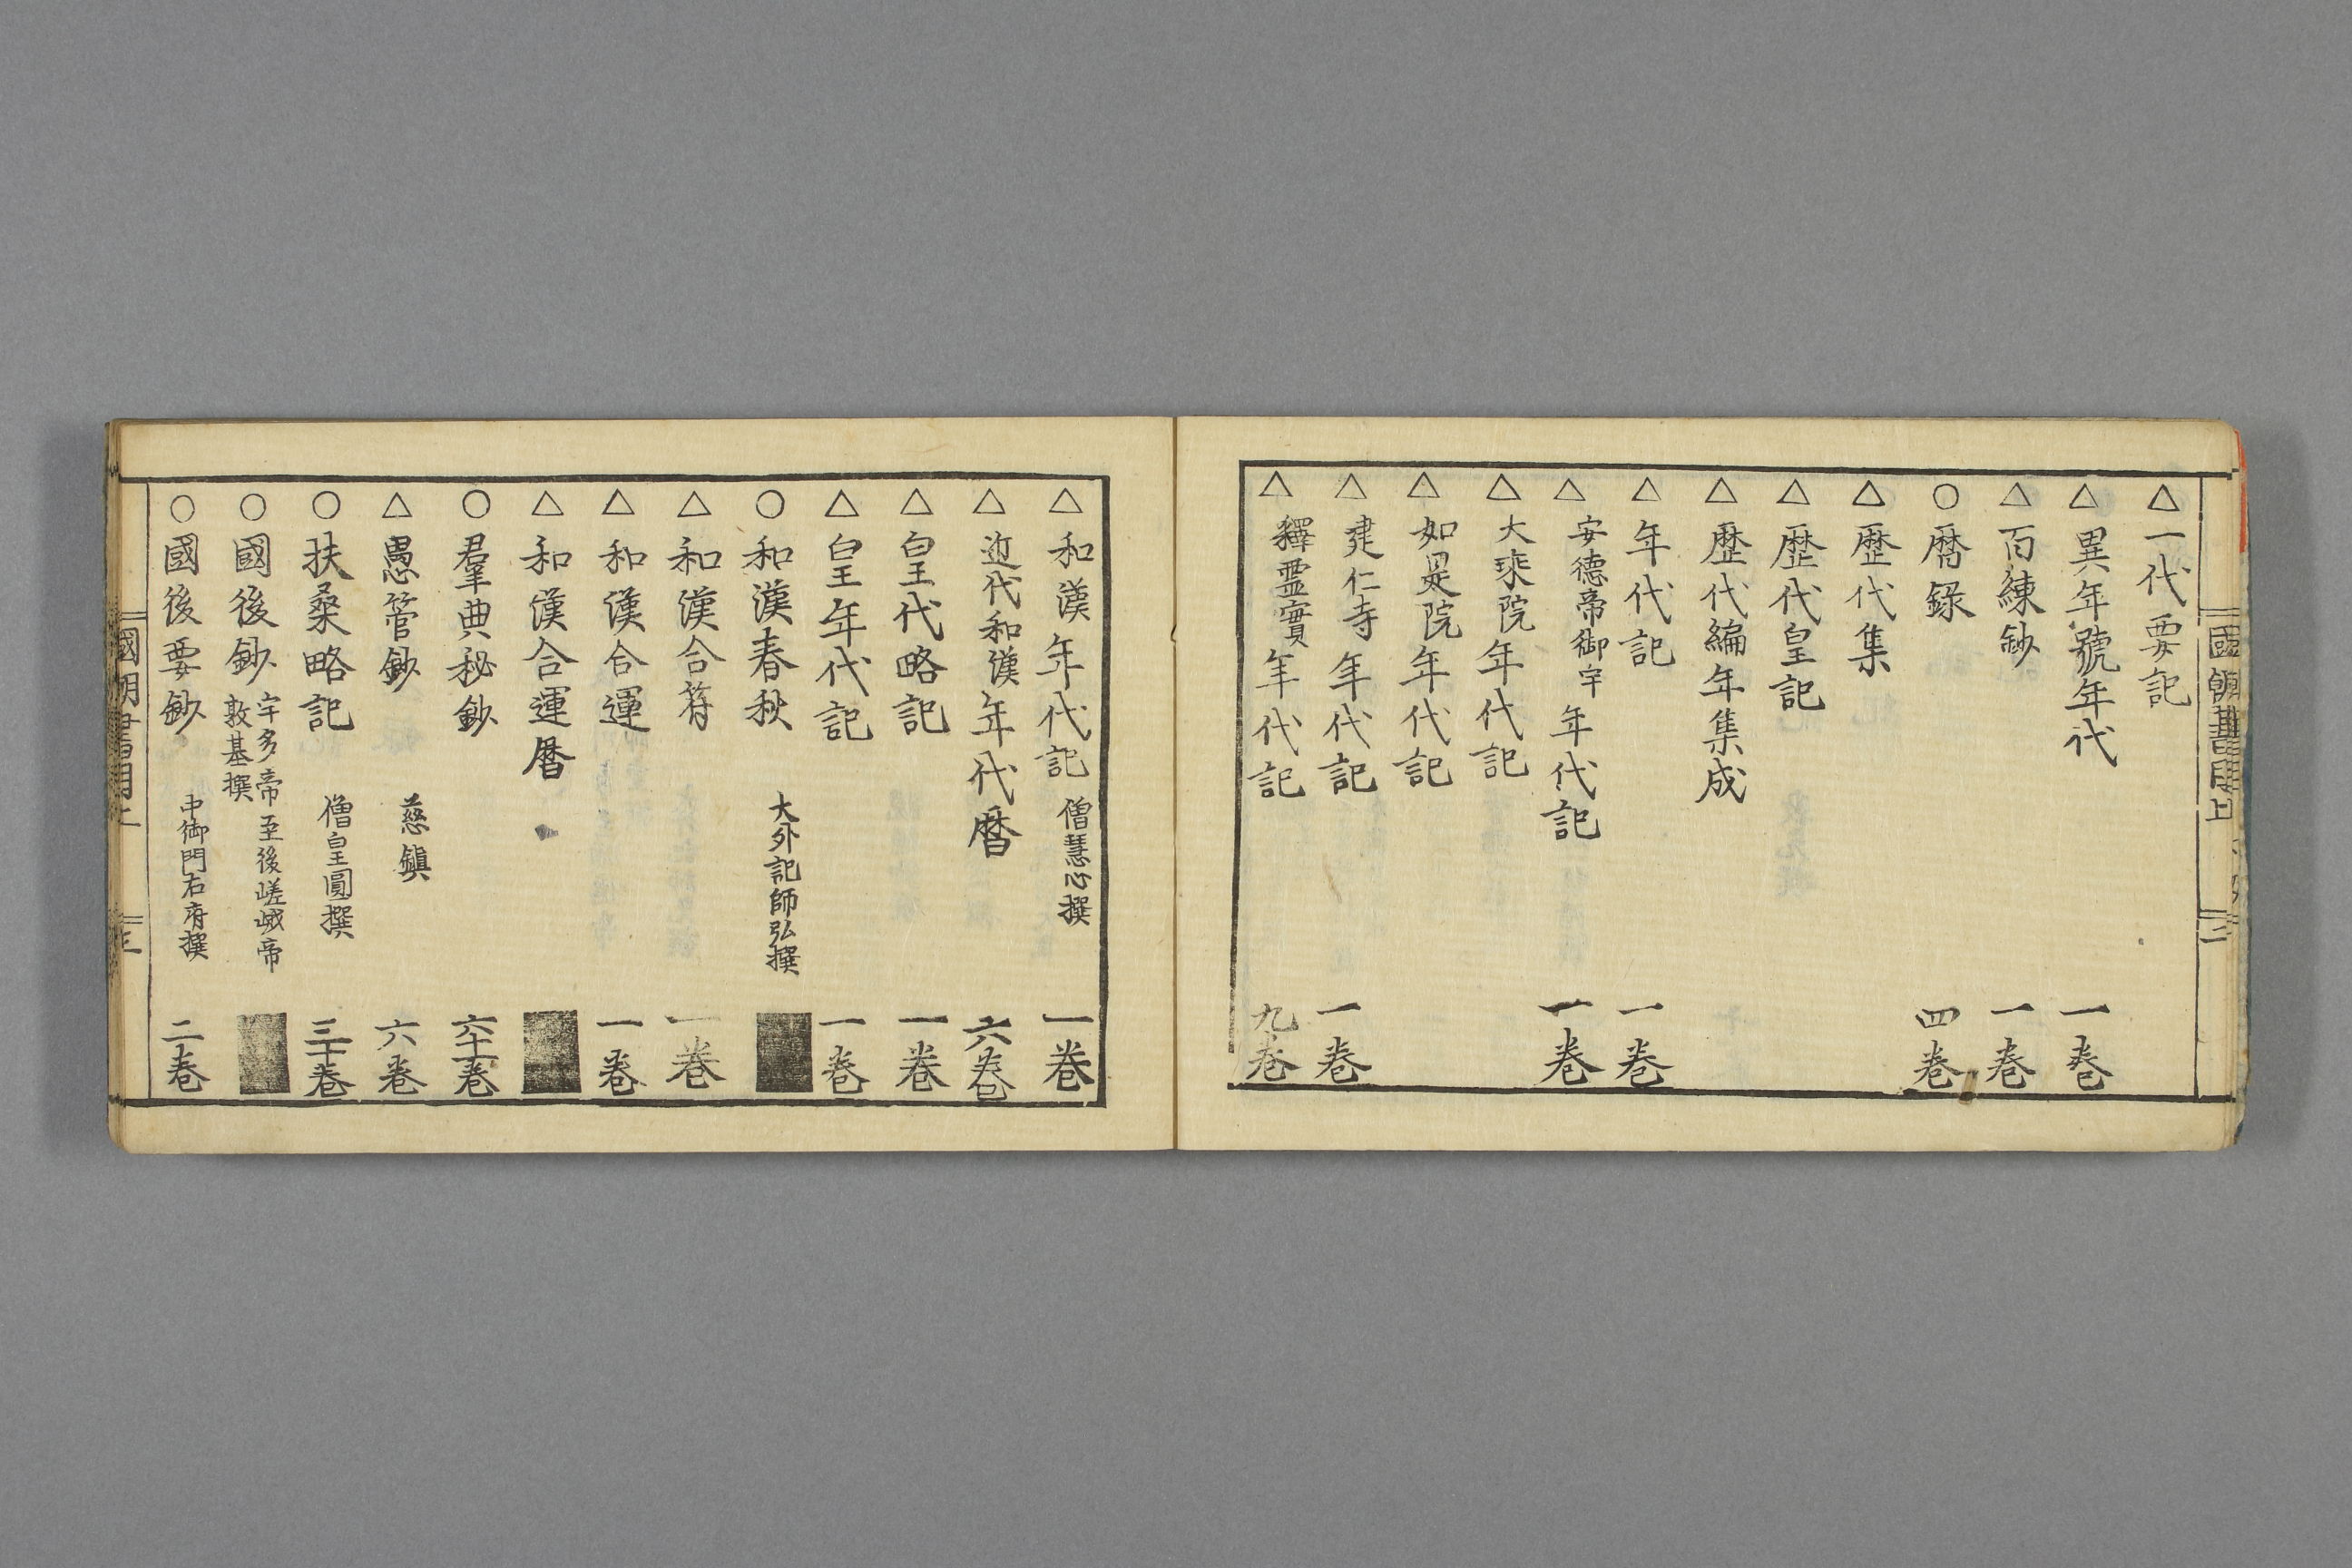 △一代要記
△異年號年代 一卷
△百練鈔 一卷
○曆錄 四卷
△歷代集
△歷代皇記
△歷代編年集成
△年代記 一卷
△安德帝御宇年代記 一卷
△大乘院年代記
△如是院年代記
△建仁寺年代記 一卷
△釋靈實年代記 九卷
△和漢年代記 僧慧心撰 一卷
△近代和漢年代曆 六卷
△皇代略記 一卷
△皇年代記 一卷
○和漢春秋 大外記師弘撰
△和漢合符 一卷
△和漢合運 一卷
△和漢合運曆
○羣典秘鈔 六十一卷
△愚管鈔 慈鎮 六卷
○扶桑略記 僧皇圓撰 三十卷
○國後鈔 宇多帝至後嵯峨帝
敦基撰
○國後要鈔 中御門右府撰 二卷
國朝書目上